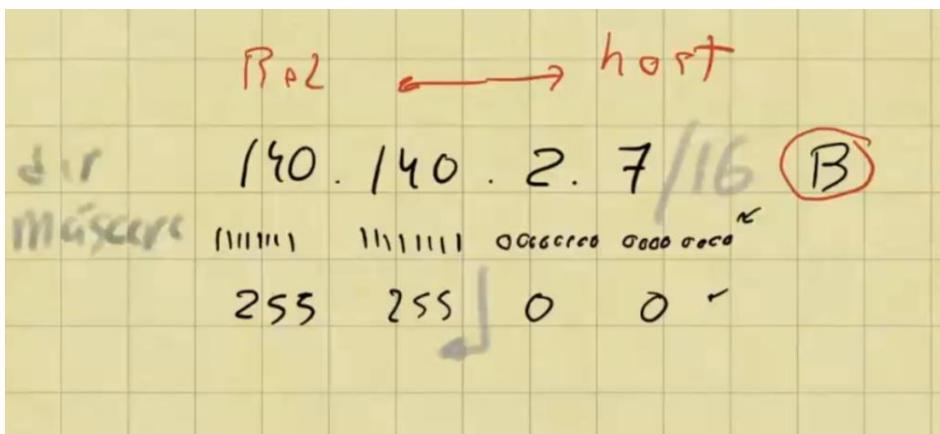 Red host
dir 140. 140. 2. 7/16 B
máscara 11111111 11111111 00000000 00000000
255 255 0 0